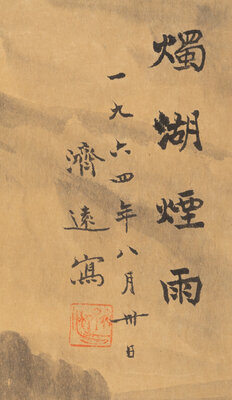 燭湖煙雨
一九六四年八月卅日
濟遠寫